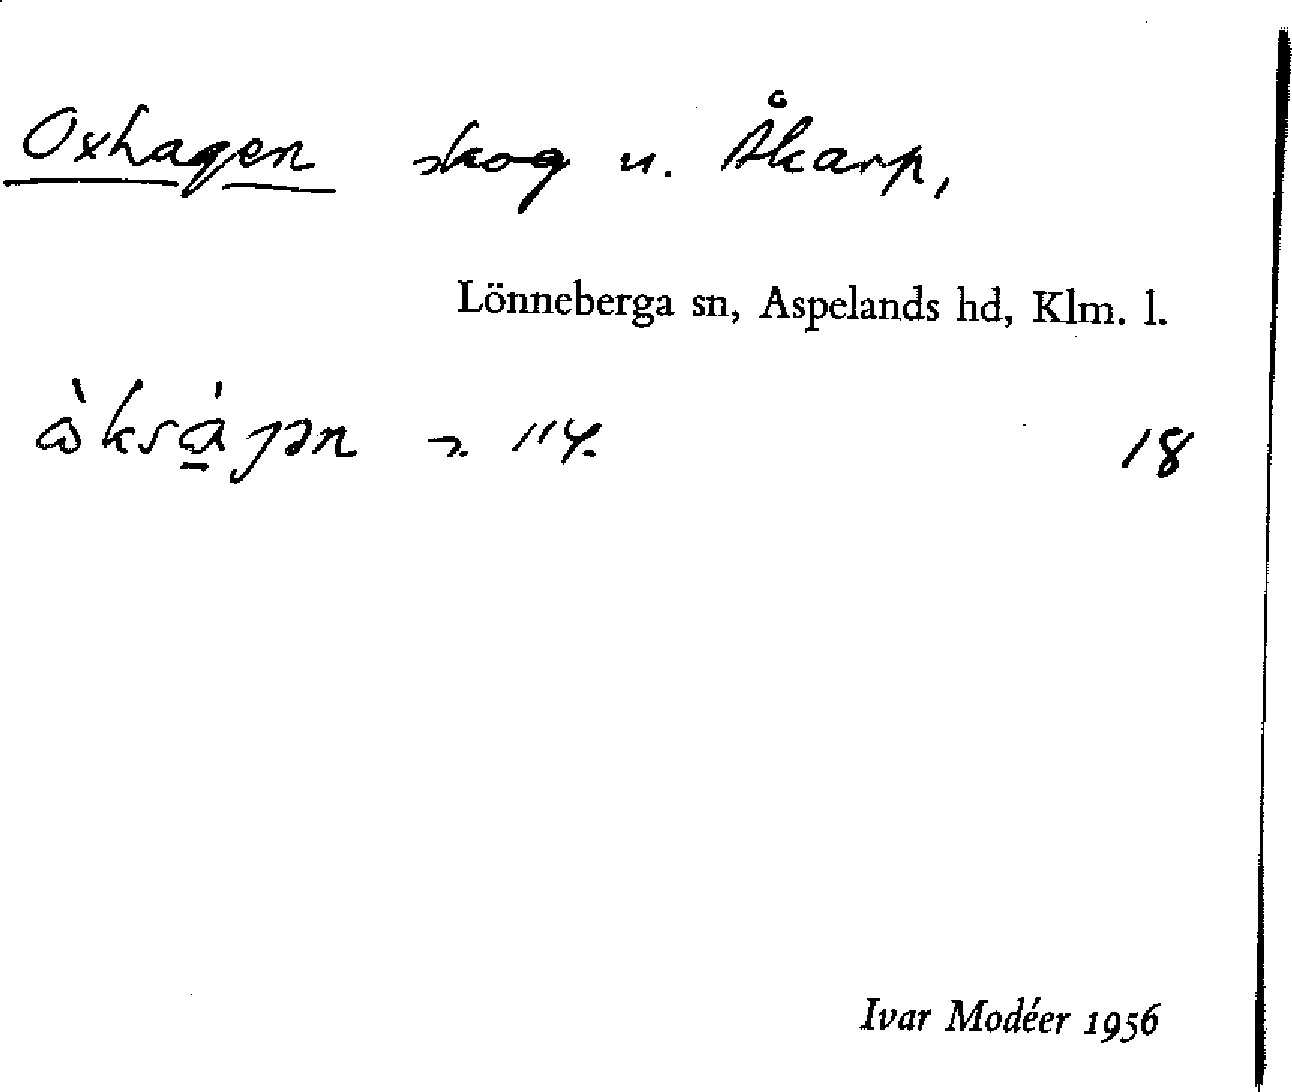 Oxhagen skog u. Åkarp,
Lönneberga sn, Aspelands hd, Klm. l.
114. 18
Ivar Modéer 1956